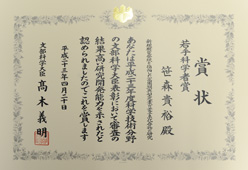 賞状
若手科学者賞
笹森貴裕殿
あなたは平成二十三年度科学技術分野
の文部科学大臣表彰において審査の
結果高い研究開発能力を示されたと
認められましたのでこれを賞します
平成二十三年四月二十日
文部科学大臣
髙木義明